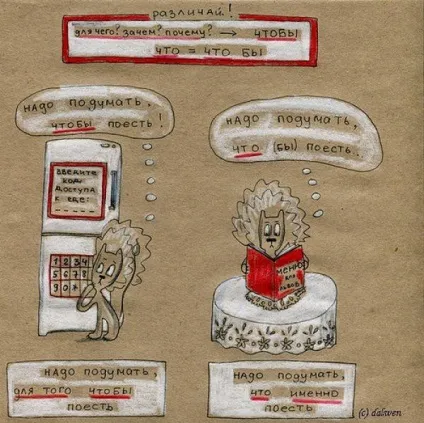 различай!
для чего? зачем? почему? → чтобы
что = что бы
надо подумать,
чтобы поесть!
надо подумать,
что (бы) поесть.
введите
код
доступа
к еде:
1 2 3 4
5 6 7 8
9 0
меню
для
львов
надо подумать,
для того чтобы
поесть
надо подумать,
что именно
поесть
(c) dalwen